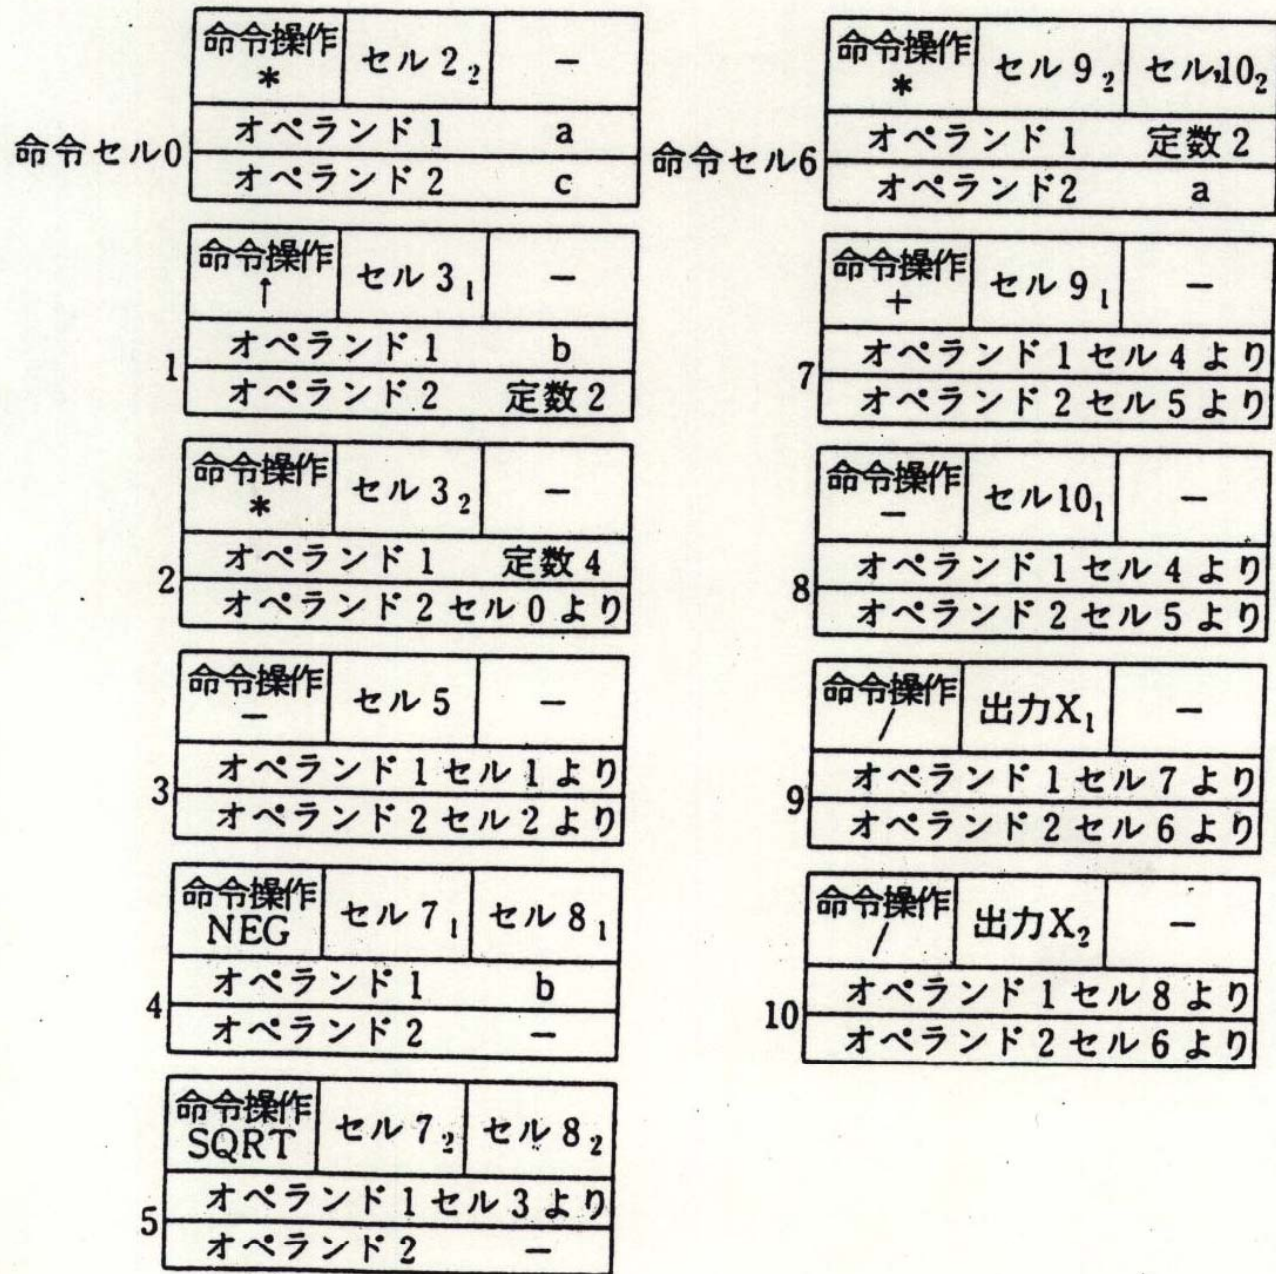 命令操作
*
セル 2₂
−
命令セル0
オペランド 1 a
オペランド 2 c
命令操作
↑
セル 3₁
−
1
オペランド 1 b
オペランド 2 定数 2
命令操作
*
セル 3₂
−
2
オペランド 1 定数 4
オペランド 2 セル 0 より
命令操作
−
セル 5
−
3
オペランド 1 セル 1 より
オペランド 2 セル 2 より
命令操作
NEG
セル 7₁
セル 8₁
4
オペランド 1 b
オペランド 2 −
命令操作
SQRT
セル 7₂
セル 8₂
5
オペランド 1 セル 3 より
オペランド 2 −
命令操作
*
セル 9₂
セル10₂
命令セル6
オペランド 1 定数 2
オペランド2 a
命令操作
+
セル 9₁
−
7
オペランド 1 セル 4 より
オペランド 2 セル 5 より
命令操作
−
セル10₁
−
8
オペランド 1 セル 4 より
オペランド 2 セル 5 より
命令操作
/
出力X₁
−
9
オペランド 1 セル 7 より
オペランド 2 セル 6 より
命令操作
/
出力X₂
−
10
オペランド 1 セル 8 より
オペランド 2 セル 6 より